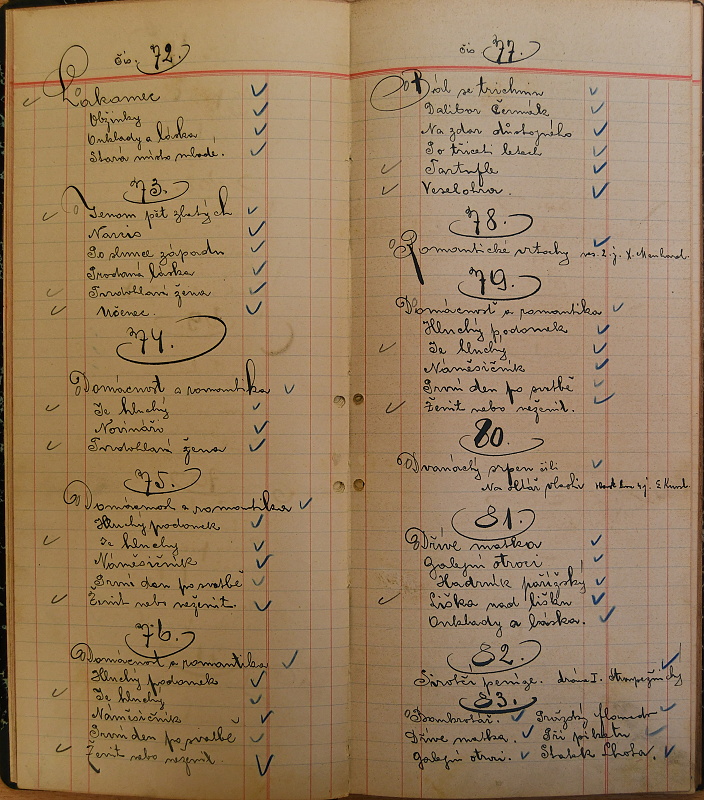 čís. 72.
Lakomec
Obžinky
Onklady a láska
Stará místo mladé.
73.
Jenom pět zlatých
Narcis
Po slunce západu
Prodaná láska
Tvrdohlavá žena
Učenec.
74.
Domácnost a romantika
Je hluchý
Novináři
Tvrdohlavá žena
75.
Domácnost a romantika
Hluchý podomek
Je hluchý
Náměsíčník
První den po svatbě
Ženit nebo neženit.
76.
Domácnost a romantika
Hluchý podomek
Je hluchý
Náměsíčník
První den po svatbě
Ženit nebo neženit.
čís 77.
Bál se trichin
Dalibor Čermák
Na zdar důstojného
Po třiceti letech
Tartuffe
Veselohra.
78.
Romantické vrtochy ves. 2. j.
79.
Domácnost a romantika
Hluchý podomek
Je hluchý
Náměsíčník
První den po svatbě
Ženit nebo neženit.
80.
Dvanáctý srpen čili
Na oltář vlasti
81.
Dříve matka
Galejní otroci
Hadrník pařížský
Liška nad lišku
Onklady a láska.
82.
Sirotčí peníze. drama I.
83.
Dříve matka. Při pikettu
Galejní otroci. Statek Lhota.